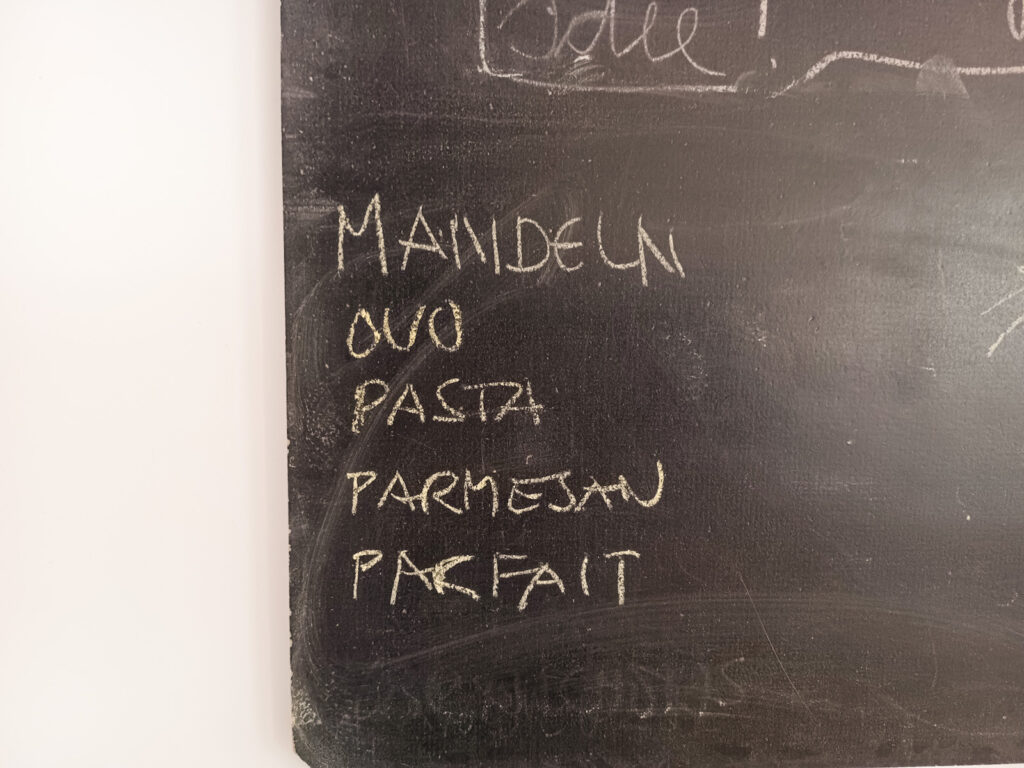 MANDELN
OVO
PASTA
PARMESAN
PARFAIT